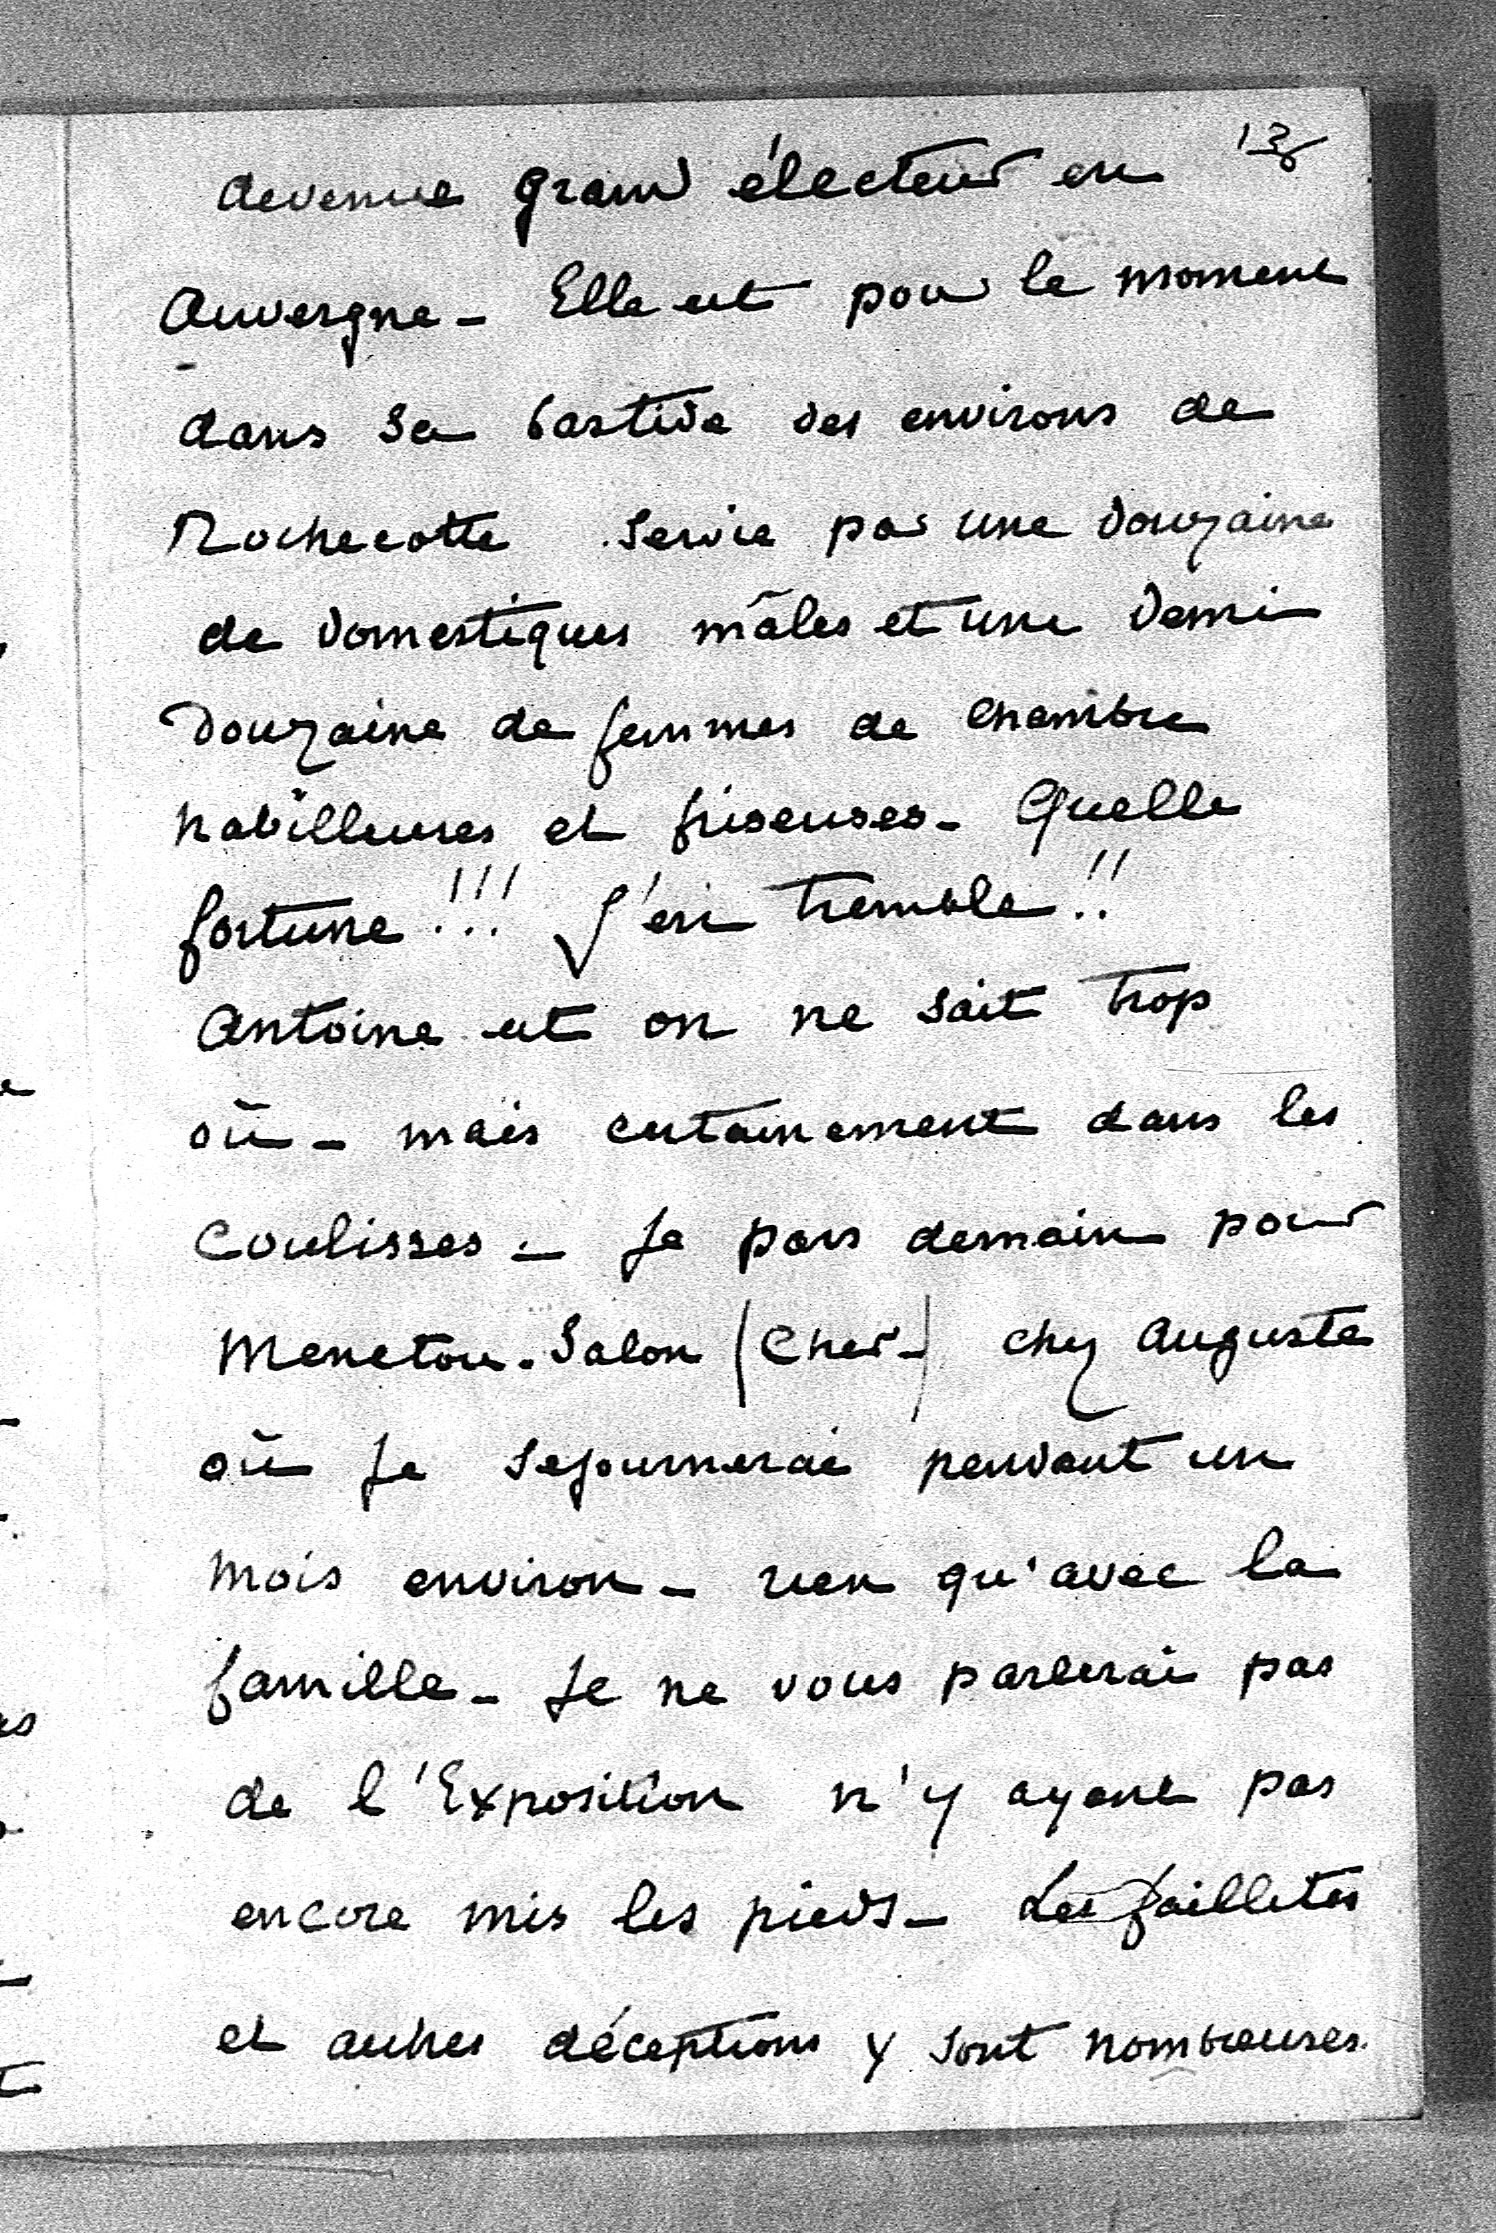 devenue grand électeur en
Auvergne - Elle est pour le moment
dans sa bastide des environs de
Rochecotte servie par une douzaine
de domestiques mâles et une demi
douzaine de femmes de chambre
habilleuses et friseuses - Quelle
fortune !!! J'en tremble !!
Antoine est on ne sait trop
où - mais certainement dans les
coulisses - Je pars demain pour
Menetou-Salon (Cher-) chez Auguste
où je sejournerai pendant un
mois environ - rien qu'avec la
famille - Je ne vous parlerai pas
de l'Exposition n'y ayant pas
encore mis les pieds - Les faillites
et autres déceptions y sont nombreuses.